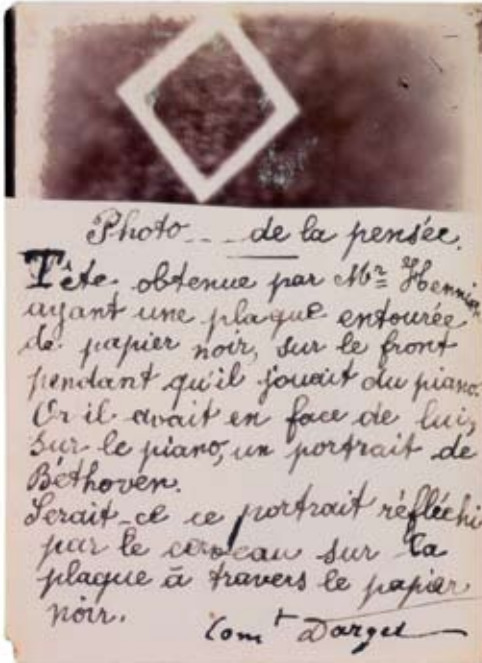 Photo _ _ _ de la pensée.
Tête obtenue par Mr Hennique
ayant une plaque entourée
de papier noir, sur le front
pendant qu'il jouait du piano.
Or il avait en face de lui,
sur le piano, un portrait de
Béthoven.
Serait-ce ce portrait réfléchi
par le cerveau sur la
plaque à travers le papier
noir.
Comt Darget